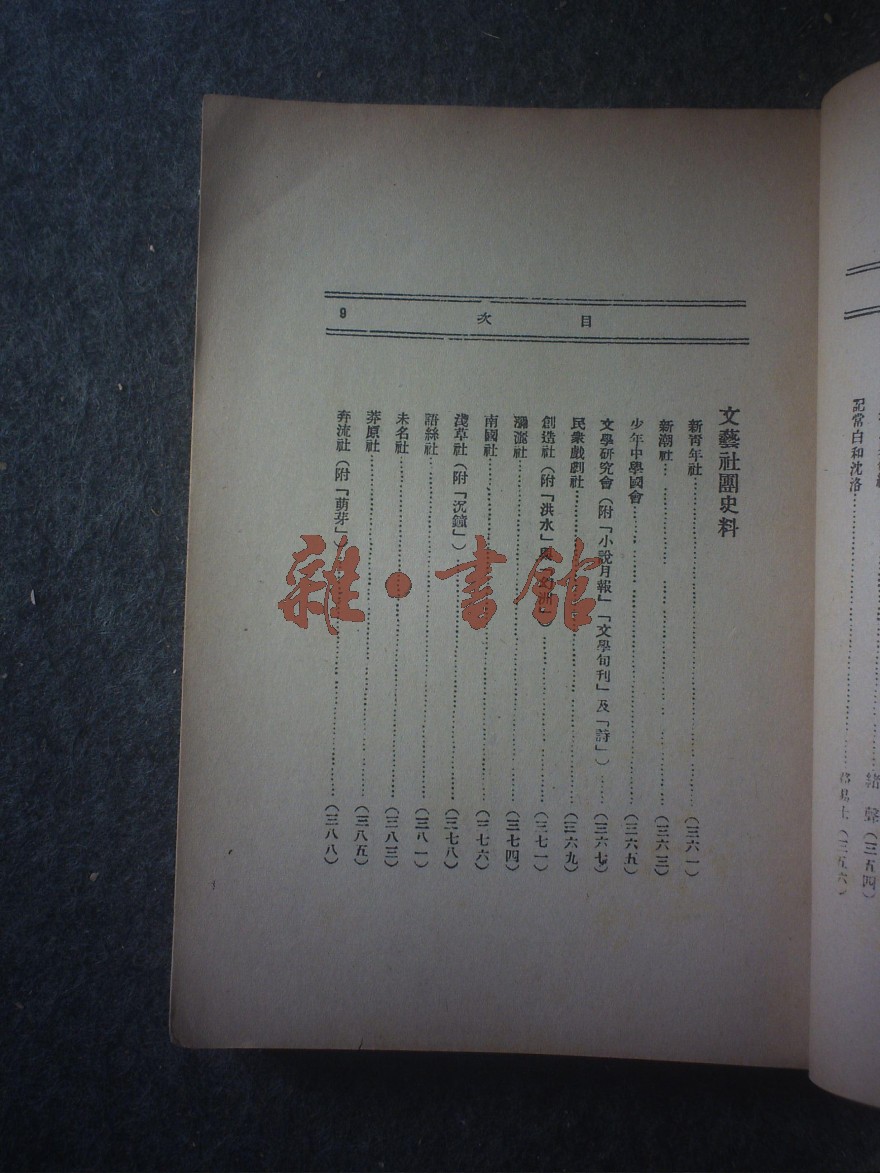 記常白和沈洛……路易士（三五六）
目　次
9
文藝社團史料
新青年社……（三六一）
新潮社……（三六三）
少年中學國會……（三六五）
文學研究會（附「小說月報」「文學旬刊」及「詩」）……（三六七）
民衆戲劇社……（三六九）
創造社（附「洪水」與　　）……（三七一）
瀰灑社……（三七四）
南國社……（三七六）
淺草社（附「沉鐘」）……（三七八）
語絲社……（三八一）
未名社……（三八三）
莽原社……（三八五）
奔流社（附「萌芽」）……（三八八）
雜·書館